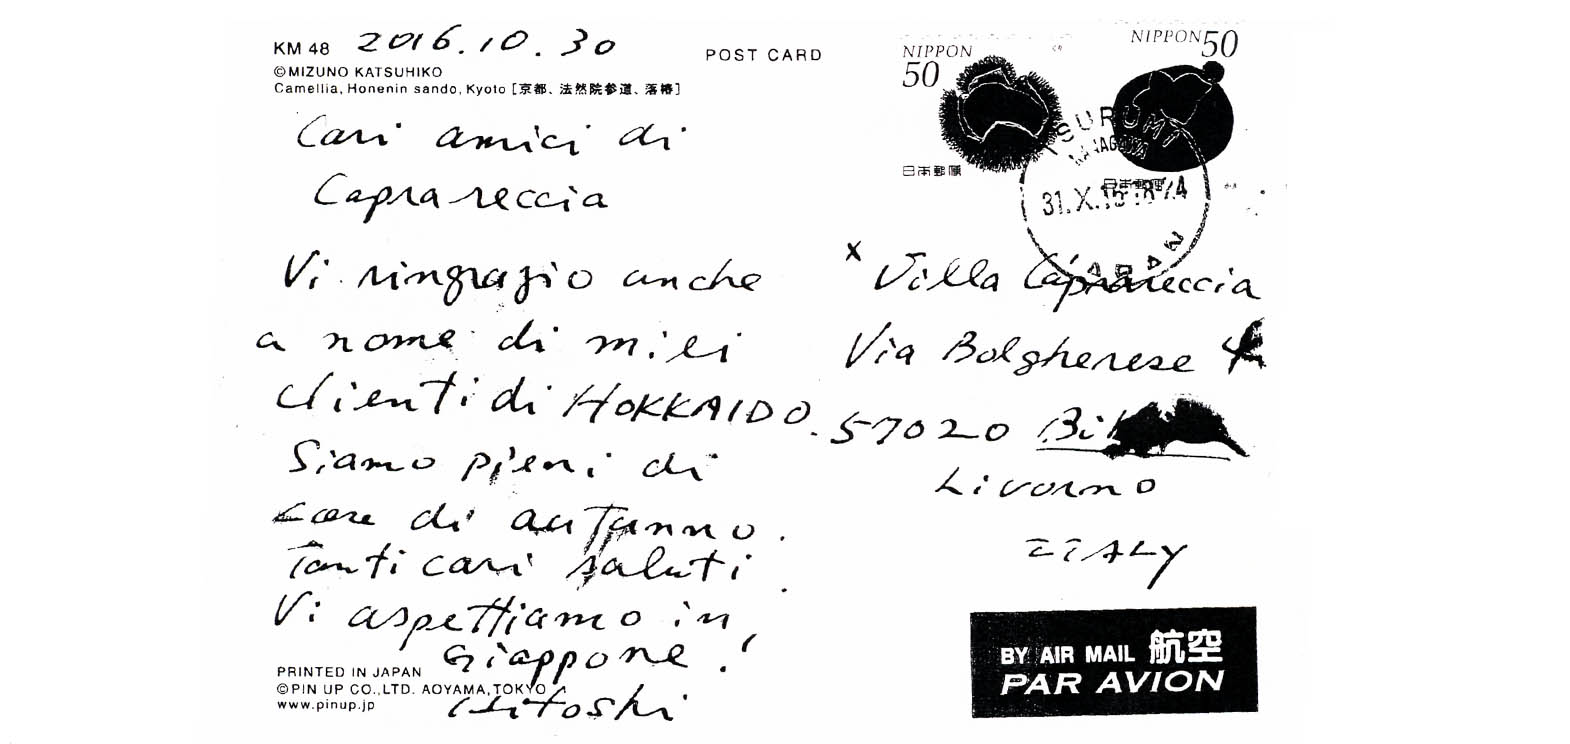 KM 48 2016.10.30
©MIZUNO KATSUHIKO
Camellia, Honenin sando, Kyoto [京都、法然院参道、落椿]
POST CARD
NIPPON
50
日本郵便
NIPPON 50
日本郵便
TSURUMI
KANAGAWA
31.X.16
JAPAN
Cari amici di
Caprareccia
Vi ringrazio anche
a nome di miei
clienti di HOKKAIDO.
Siamo pieni di
di autunno.
Tanti cari saluti.
Vi aspettiamo in
Giappone!
Hitoshi
x Villa Caprareccia
Via Bolgherese 4
57020
Livorno
ITALY
BY AIR MAIL 航空
PAR AVION
PRINTED IN JAPAN
©PIN UP CO.,LTD. AOYAMA,TOKYO
www.pinup.jp